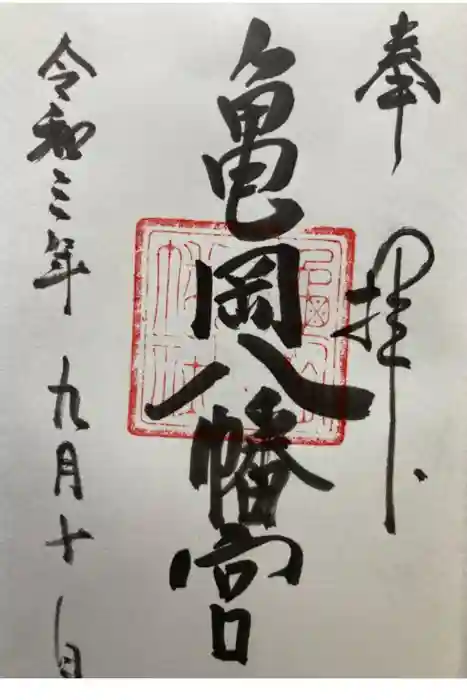 奉拝
亀岡八幡宮
令和三年九月十日